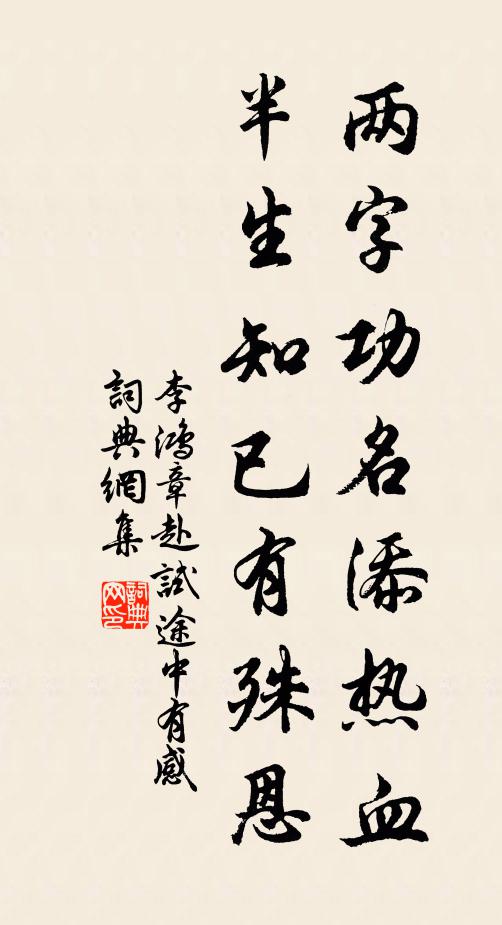 两字功名添热血
半生知已有殊恩
李鸿章赴試途中有感
詞典網集
詞典
网印